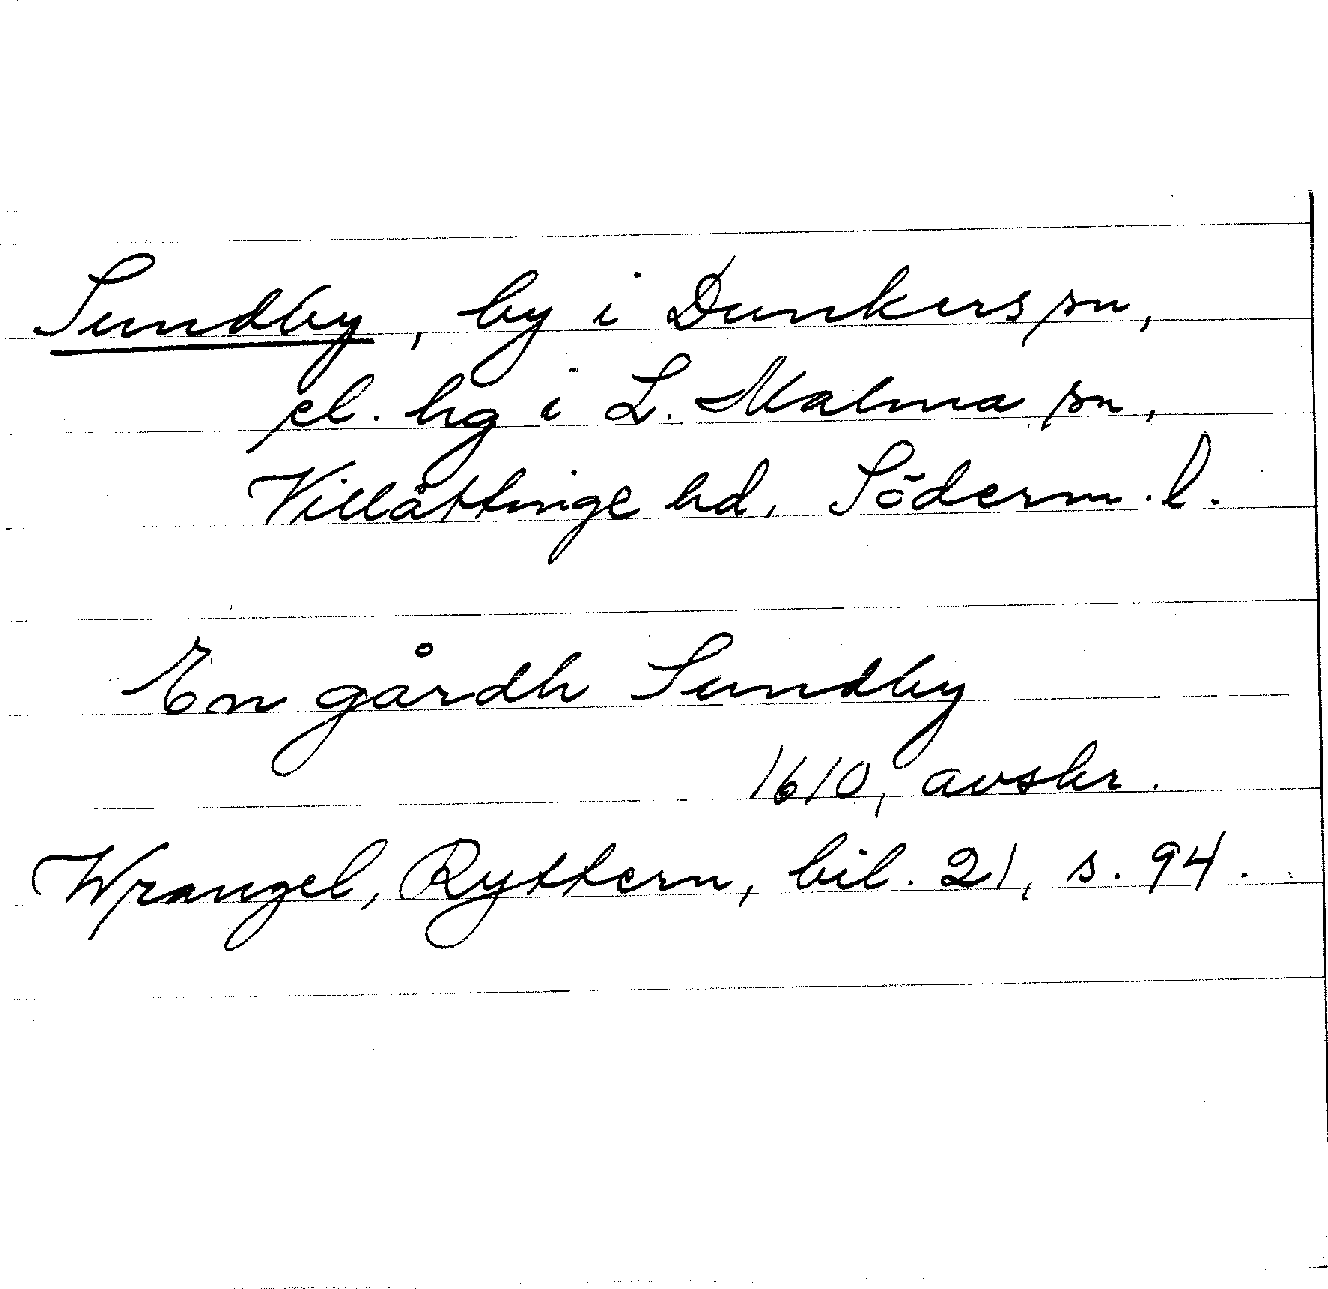 Sundby, by i Dunkers sn,
el. hg i L. Malma sn,
Villåttinge hd, Söderm. l.
En gårdh Sundby
1610, avskr.
Wrangel, Ryttern, bil. 21, s. 94.